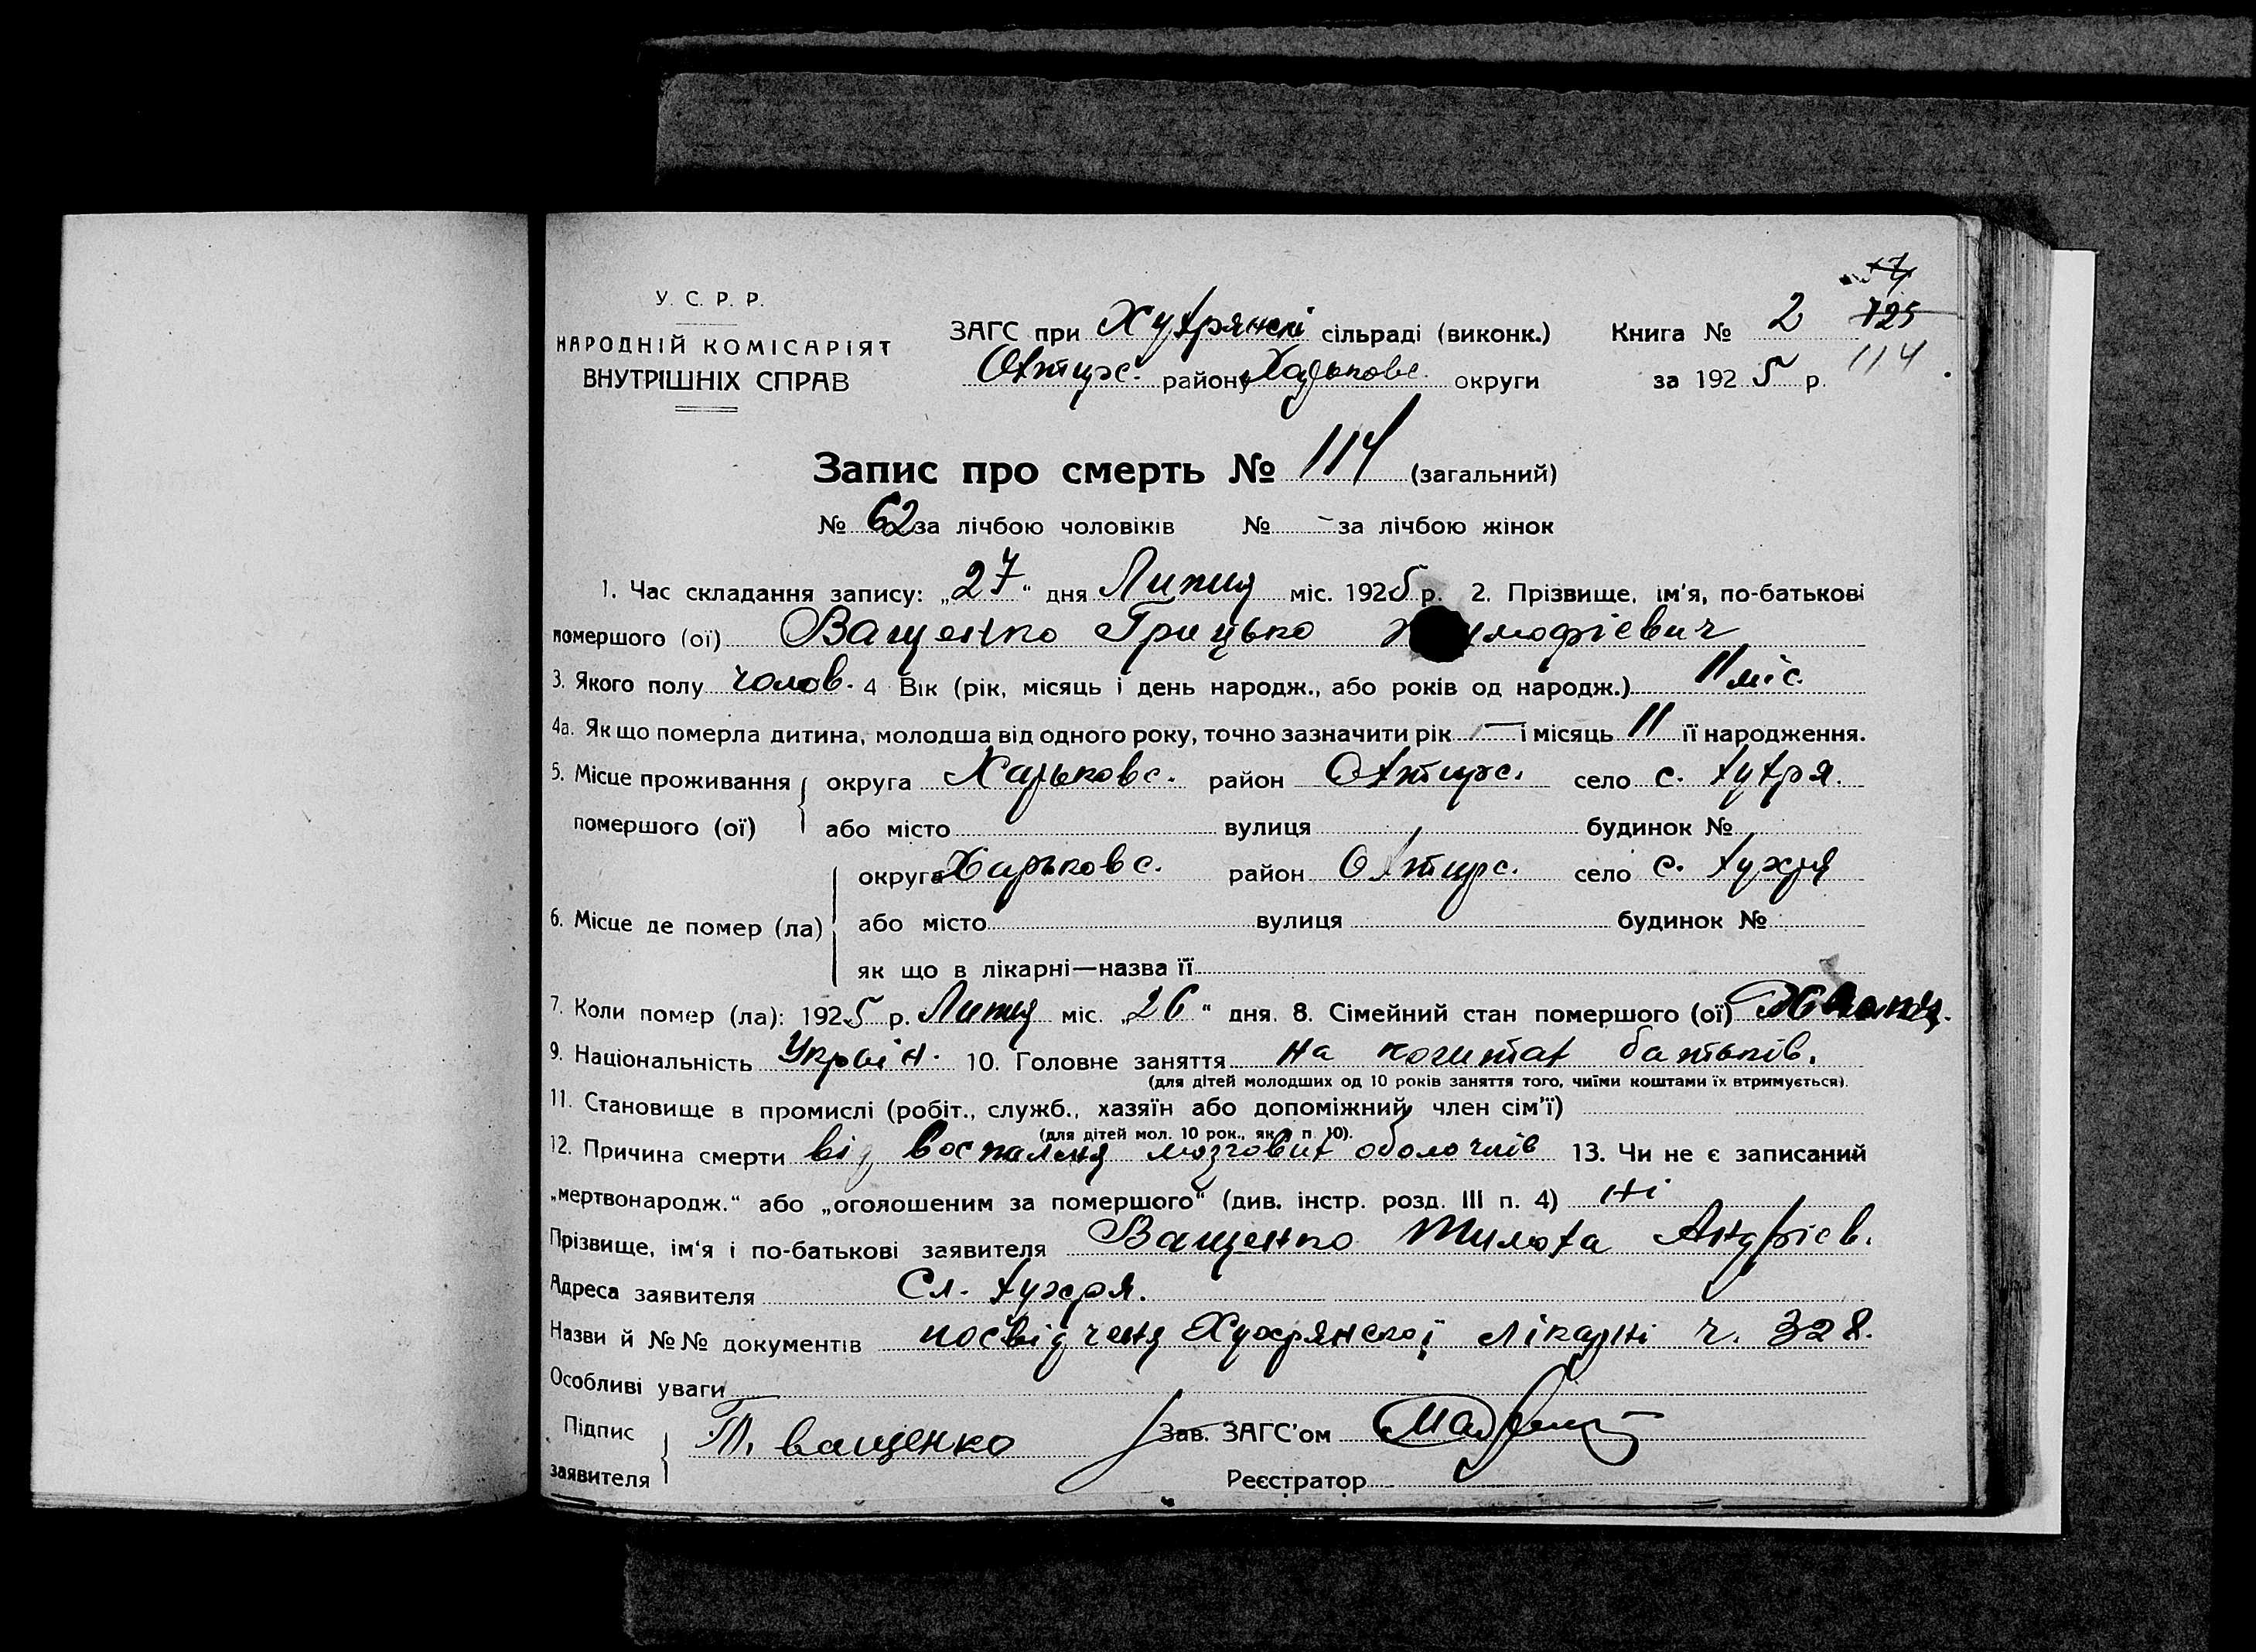 57
У. С. Р. Р.
НАРОДНІЙ КОМІСАРІЯТ
ВНУТРІШНІХ СПРАВ
ЗАГС при Хухрянскі сільраді (виконк.) Книга № 2 125
Охтирс. району Харьковс. округи за 1925 р. 114
Запис про смерть № 114 (загальний)
№ 62 за лічбою чоловіків № - за лічбою жінок
1. Час складання запису: „27“ дня Липня міс. 1925 р. 2. Прізвище, ім'я, по-батькові
помершого (ої) Ващенко Грицько
3. Якого полу чолов. 4 Вік (рік, місяць і день народж., або років од народж.) 11 міс.
4а. Як що померла дитина, молодша від одного року, точно зазначити рік — і місяць 11 її народження.
5. Місце проживання округа Харьковс. район Охтирс. село с. Хухря.
помершого (ої) або місто вулиця будинок №
округа Харьковс. район Охтирс. село с. Хухря
6. Місце де помер (ла) або місто вулиця будинок №
як що в лікарні—назва її
7. Коли помер (ла): 1925 р. Липня міс. „26“ дня. 8. Сімейний стан помершого (ої)
9. Національність Україн. 10. Головне заняття на коштах батьків.
(для дітей молодших од 10 років заняття того, чиїми коштами їх втримується).
11. Становище в промислі (робіт., служб., хазяїн або допоміжний член сім'ї)
(для дітей мол. 10 рок., як п. 10).
12. Причина смерти від воспаленя мозгових оболочків 13. Чи не є записаний
„мертвонародж.“ або „оголошеним за помершого“ (див. інстр. розд. III п. 4) Ні
Прізвище, ім'я і по-батькові заявителя Ващенко Тимоха Андрієв.
Адреса заявителя Сл. Хухря.
Назви й №№ документів посвідченя Хухрянскої лікарні ч. 328.
Особливі уваги
Підпис заявителя Т. Ващенко Зав. ЗАГС'ом
Реєстратор